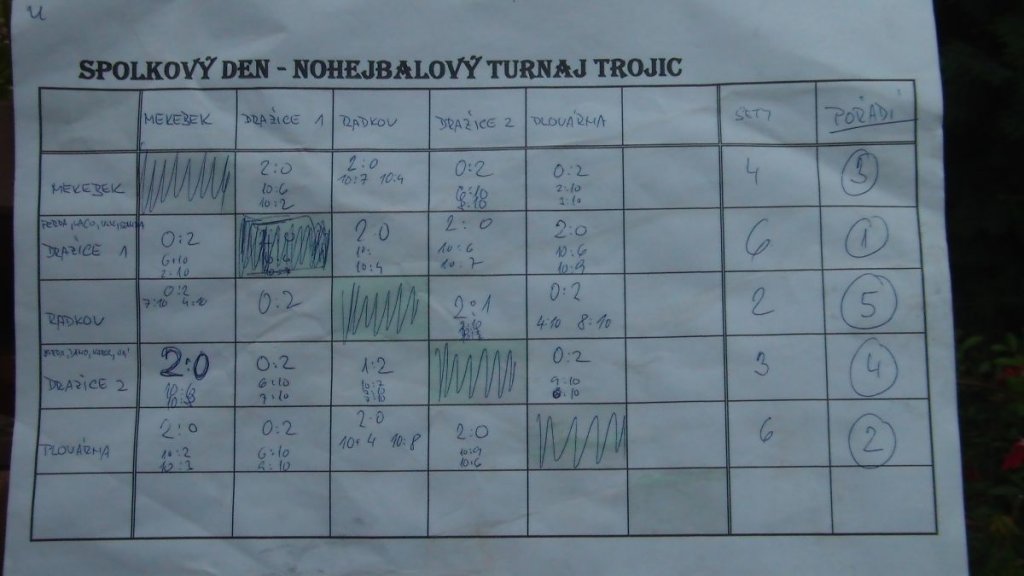 SPOLKOVÝ DEN - NOHEJBALOVÝ TURNAJ TROJIC
MEKEBEK DRAŽICE 1 RADKOV DRAŽICE 2 PLOVÁRMA SETY POŘADÍ
MEKEBEK 2:0 2:0 0:2 0:2 4 3
10:6 10:7 10:4 6:10 2:10
10:2 8:10
DRAŽICE 1 0:2 2:0 2:0 2:0 6 1
6:10 10: 10:6 10:6
2:10 10:4 10:7 10:9
RADKOV 0:2 0:2 2:1 0:2 2 5
7:10 4:10 4:10 8:10
DRAŽICE 2 2:0 0:2 1:2 0:2 3 4
6:10 9:10
7:10 6:10
PLOVÁRMA 2:0 0:2 2:0 2:0 6 2
10:2 6:10 10:4 10:8 10:9
9:10 10:6